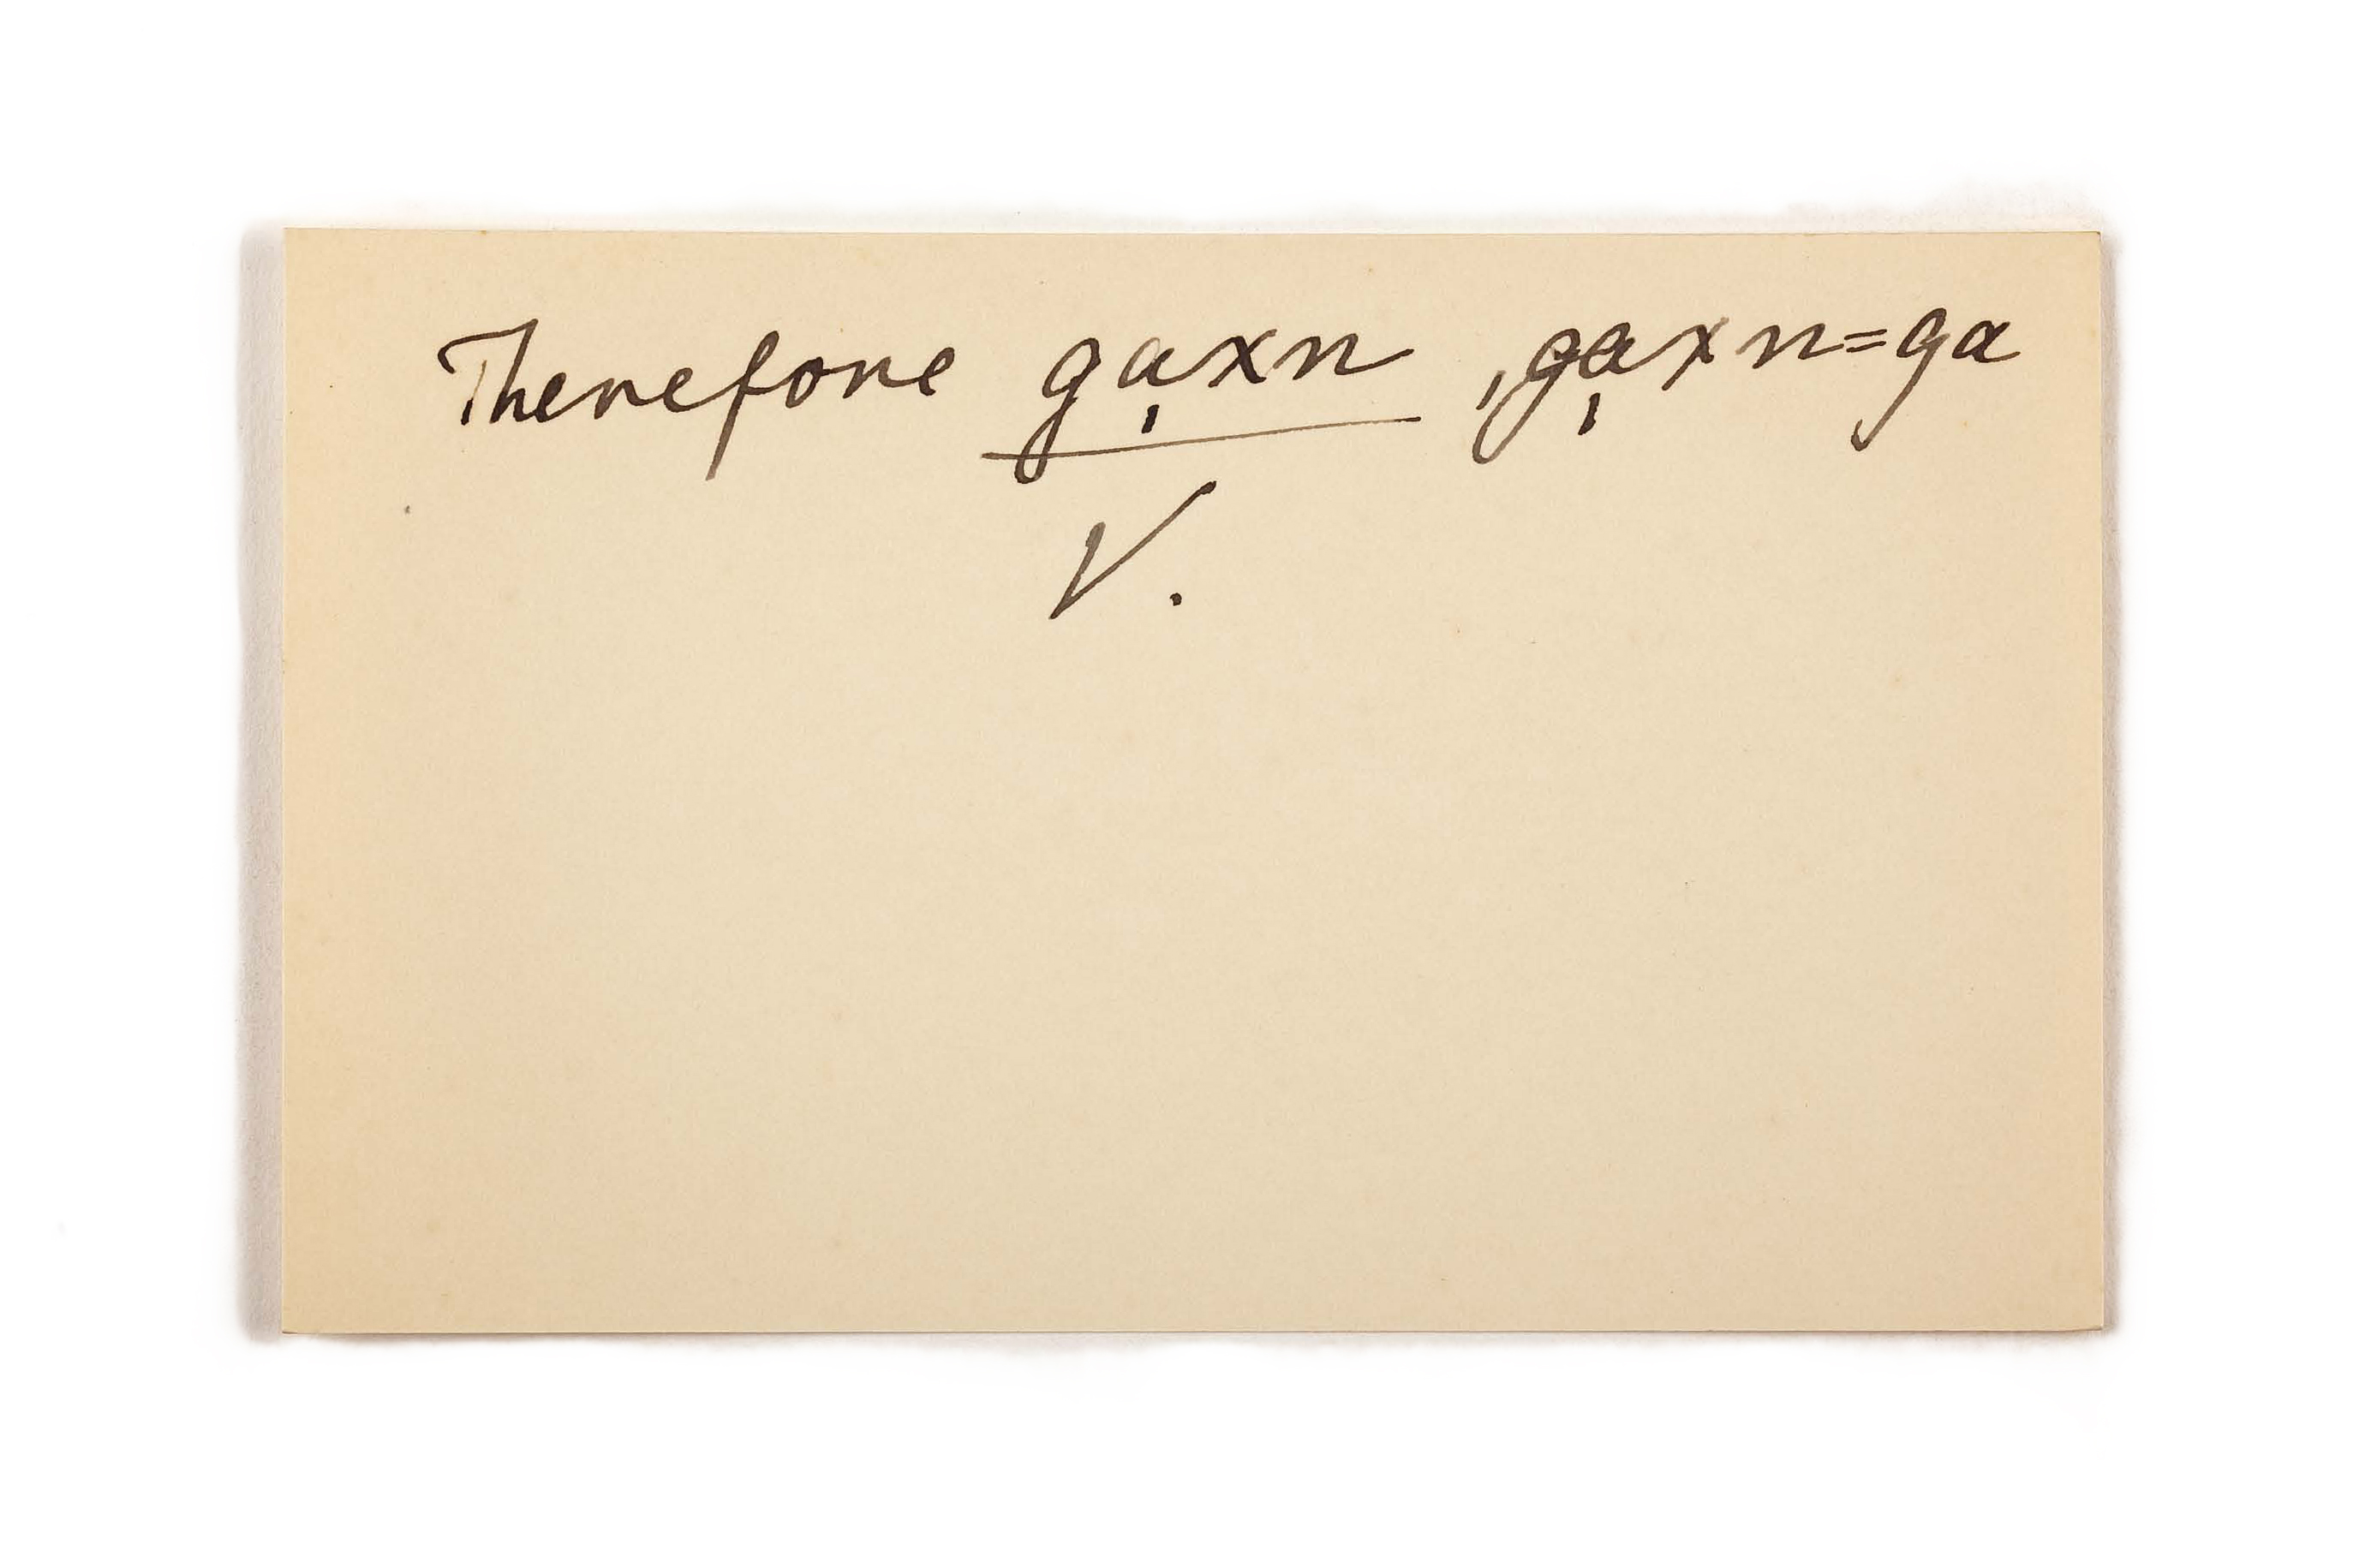 Therefore ga̩xn ,ga̩xn=ga
V.